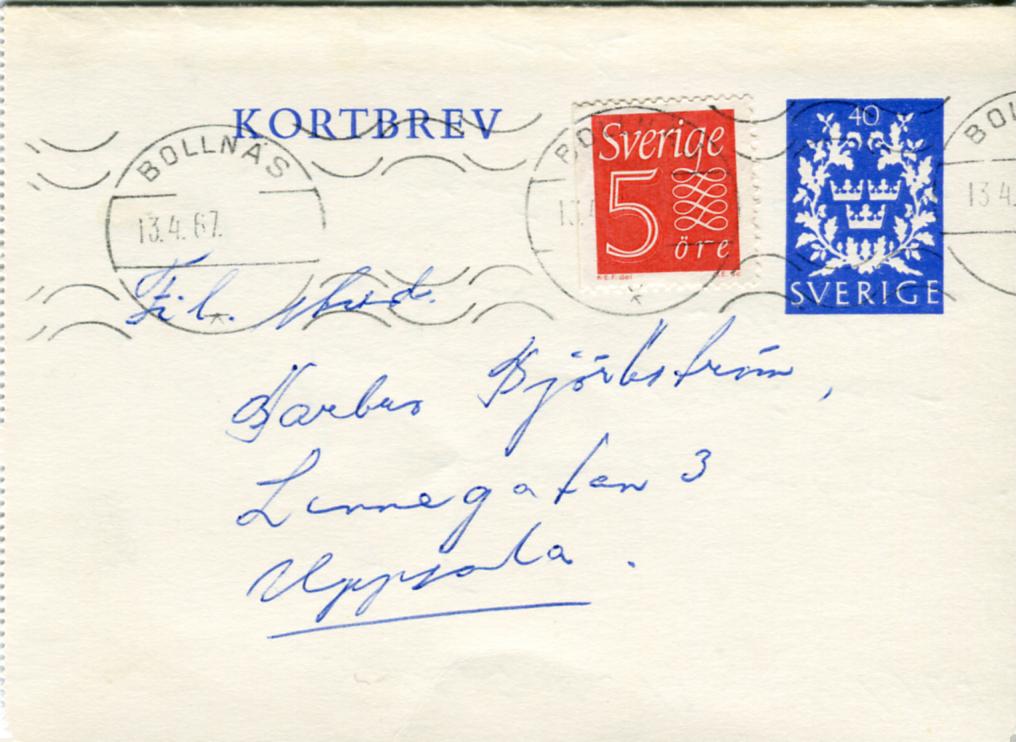 KORTBREV
BOLLNÄS
13.4.67.
BO
13.4
Sverige
5
öre
40
SVERIGE
BOL
13.4.
Fil. stud.
Barbro Björkström,
Linnegatan 3
Uppsala.